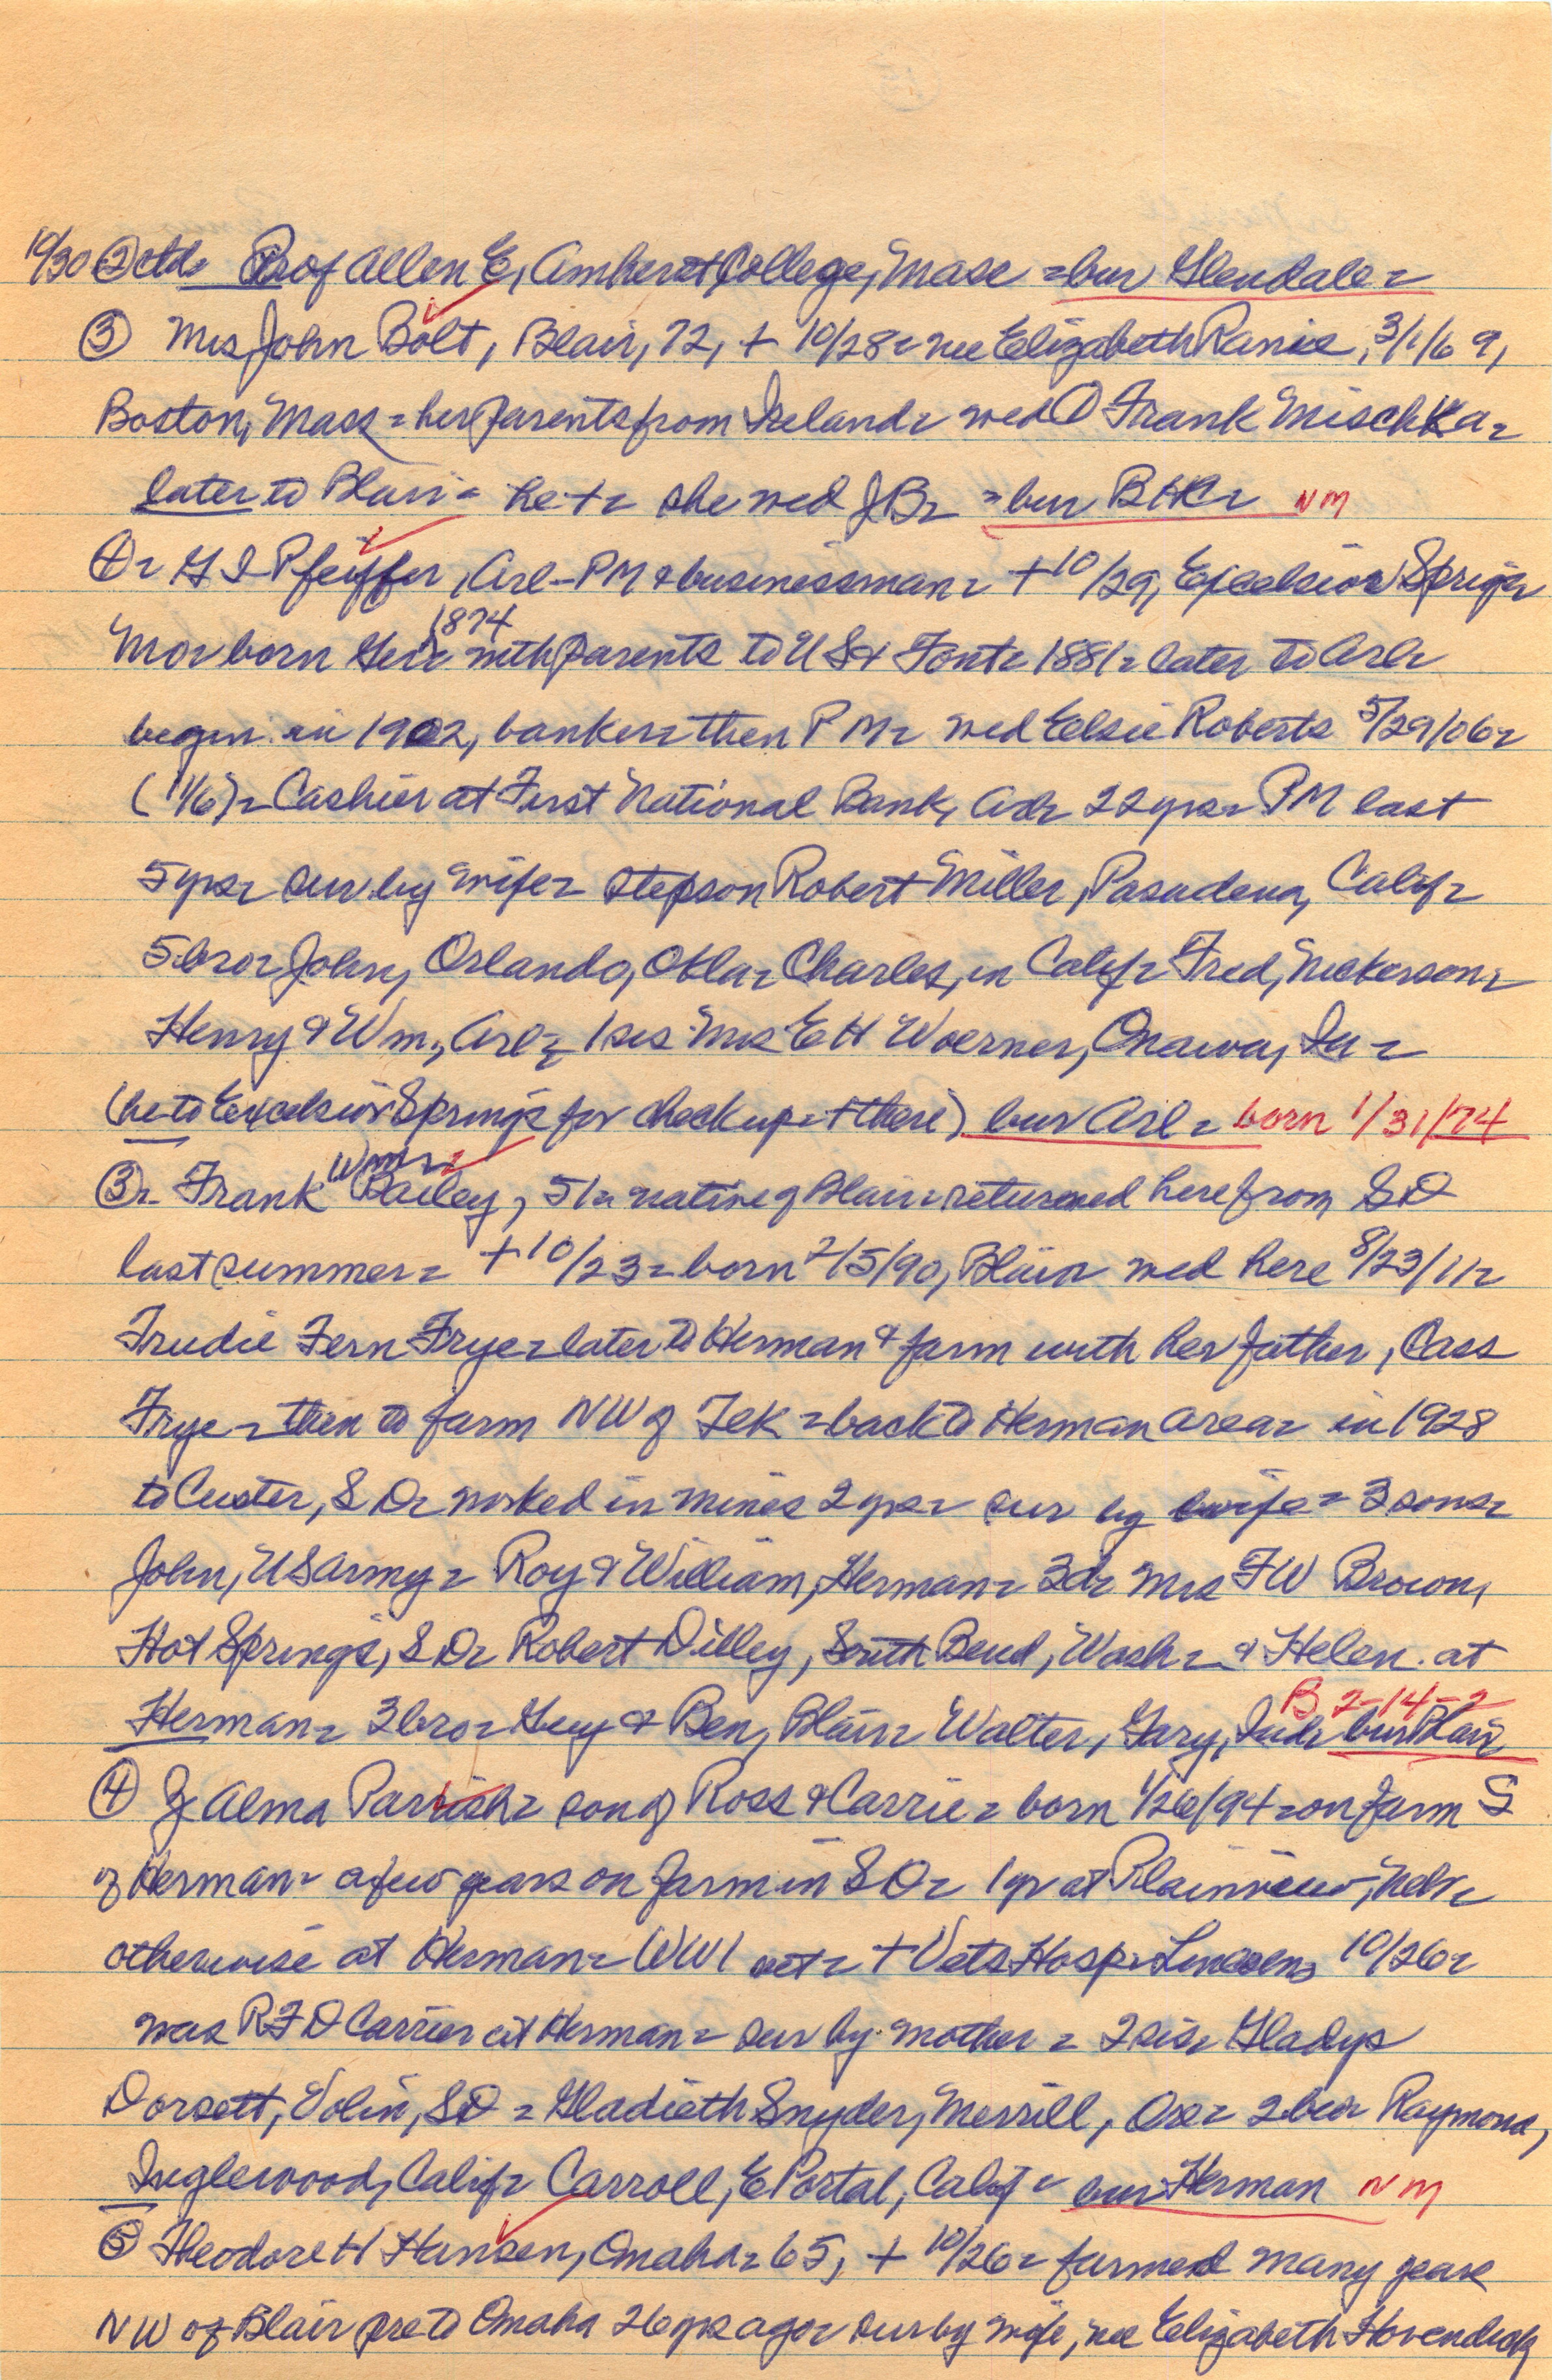 10/30 ② ctd= Prof Allen E, Amherst College, Mass =bur Glendale=
③ Mrs John Bolt, Blair, 72, + 10/28= nee Elizabeth , 3/1/69,
Boston, Mass = her parents from Ireland= wed ① Frank Mischka=
later to Blair= he += she wed JB= =bur B NM
④= G I Pfeiffer, Arl-PM & businessman= + 10/29, Excelsior Springs
Mo= born Ger= 1874 with parents to US & Font= 1881= later to Arl=
began in 1902, banker= then PM= wed Elsie Roberts 5/29/06=
(11/6)= Cashier at First National Bank, Arl= 22 yrs= PM last
5 yrs= sur by wife= stepson Robert Miller, Pasadena, Calif=
5 bro= John, Orlando, Okla= Charles, in Calif= Fred, Nickerson=
Henry & Wm, Arl= 1 sis Mrs E H Woerner, Onawa, Ia=
(he to Excelsior Springs for check up= + there) bur Arl= born 1/31/74
③= Frank Wm= Bailey, 51= native of Blair= returned here from SD
last summer= + 10/23= born 2/5/90, Blair= wed here 8/23/11=
Trudie Fern Frye= later to Herman & farm with her father, Cass
Frye= then to farm NW of Tek= back to Herman area= in 1928
to Custer, SD= worked in mines 2 yrs= sur by wife= 3 sons=
John, US Army= Roy & William, Herman= 3d= Mrs F W Brown,
Hot Springs, SD= Robert Dilley, South Bend, Wash= & Helen at
Herman= 3 bro= Guy & Ben, Blair= Walter, Gary, Ind= bur Blair B 2-14-2
④ J Alma Parrish= son of Ross & Carrie= born 1/26/94= on farm S
of Herman= a few years on farm in SD= 1 yr at Plainview, Neb=
otherwise at Herman= WW1 vet= + Vets Hosp= Lincoln, 10/26=
was RFD Carrier at Herman= sur by mother= 2 sis= Gladys
Dorsett, Volin, SD= Gladieth Snyder, Merrill, Ore= 2 bro= Raymond,
Inglewood, Calif= Carroll, E Portal, Calif= bur Herman NM
⑤ Theodore H Hansen, Omaha= 65, + 10/26= farmed many years
NW of Blair pre to Omaha 26 yrs ago= sur by wife, nee Elizabeth